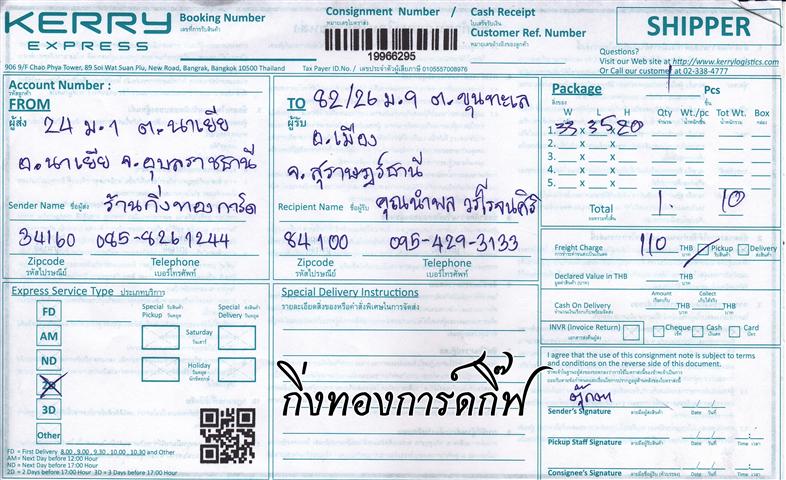 KERRY EXPRESS
Booking Number
เลขที่การรับสินค้า
Consignment Number /
หมายเลขใบตราส่ง
19966295
Cash Receipt
ใบเสร็จรับเงิน
Customer Ref. Number
หมายเลขอ้างอิงของลูกค้า
SHIPPER
906 9/F Chao Phya Tower, 89 Soi Wat Suan Plu, New Road, Bangrak, Bangkok 10500 Thailand
Tax Payer ID.No. / เลขประจำตัวผู้เสียภาษี 0105557008976
Questions?
Visit our Web site at http://www.kerrylogistics.com
Or Call our customer at 02-338-4777
Account Number :
รหัสลูกค้า
FROM
ผู้ส่ง
24 ม.1 ต.นาเยีย
อ.นาเยีย จ.อุบลราชธานี
Sender Name ชื่อผู้ส่ง ร้านกิ่งทองการ์ด
34160 085-8261244
Zipcode Telephone
รหัสไปรษณีย์ เบอร์โทรศัพท์
TO
ผู้รับ
82/26 ม.9 ต.ขุนทะเล
อ.เมือง
จ.สุราษฎร์ธานี
Recipient Name ชื่อผู้รับ คุณนำพล วรโรจนศิริ
84100 095-429-3133
Zipcode Telephone
รหัสไปรษณีย์ เบอร์โทรศัพท์
Package 1 Pcs
สิ่งของ ชิ้น
W L H Qty Wt./pc Tot Wt. Box
1. 33 x 35 x 20
2. x x
3. x x
4. x x
5. x x
Total 1. 10
Freight Charge 110 THB Pickup Delivery
Declared Value in THB THB
Amount Collect
Cash On Delivery THB THB
INVR (Invoice Return) Cheque Cash Card
I agree that the use of this consignment note is subject to terms
and conditions on the reverse side of this document.
Sender's Signature Date Time
Pickup Staff Signature Date Time
Consignee's Signature Date Time
Express Service Type ประเภทบริการ
FD
AM
ND
2D
3D
Other
Special Pickup
Special Delivery
Saturday
วันเสาร์
Holiday
Special Delivery Instructions
รายละเอียดสิ่งของหรือคำสั่งพิเศษในการจัดส่ง
กิ่งทองการ์ดกิ๊ฟ
FD = First Delivery 8.00 , 9.00 , 9.30 , 10.00 , 10.30 and Other
AM = Next Day before 12:00 Hour
ND = Next Day before 17:00 Hour
2D = 2 Days before 17:00 Hour 3D = 3 Days before 17:00 Hour